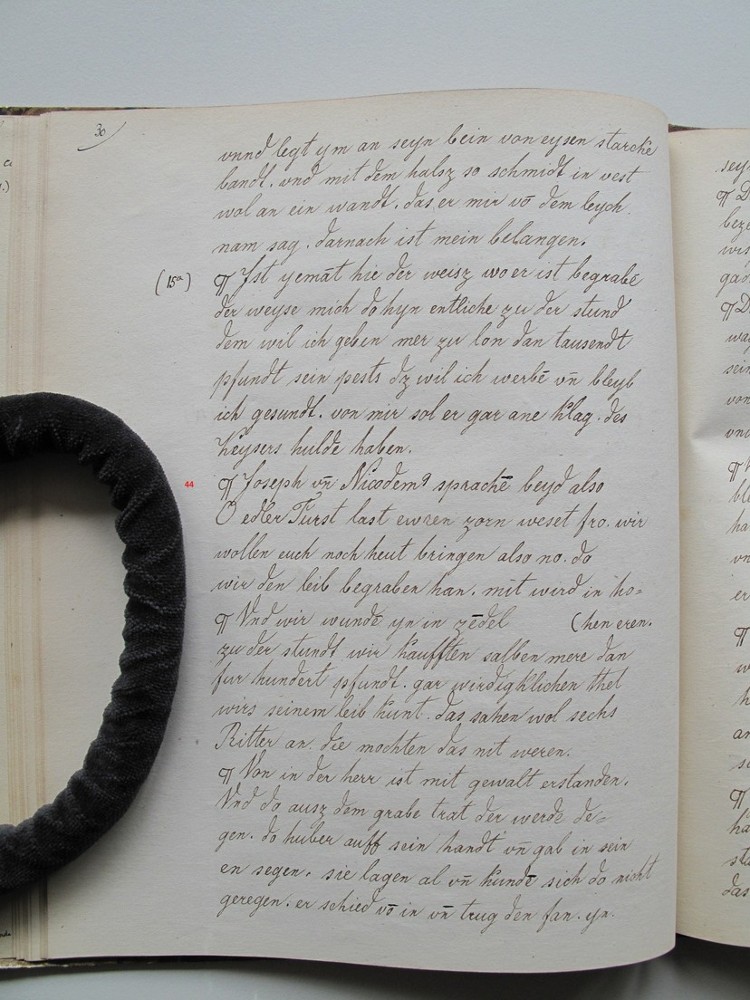 30
vnnd legt ym an seyn bein von eysen starckē
bandt. vnd mit dem halsz so schmidt in vest
wol an ein wandt. das er mir vō dem leych
nam sag. darnach ist mein belangen.
(15a) ¶ Ist yemāt hie der weisz wo er ist begrabē
der weyse mich do hyn entliche zu der stund
dem wil ich geben mer zu lon dan tausendt
pfundt sein pests dz wil ich werbē vn̄ bleyb
ich gesundt. von mir sol er gar ane klag. des
Keysers hulde haben.
44 ¶ Joseph vn̄ Nicodem9 sprachē beyd also
O edler Furst last ewren zorn weset fro. wir
wollen euch noch heut bringen also no. do
wir den leib begraben han. mit wird in ho=
¶ Vnd wir wundē yn in zēdel (chen eren.
zu der stundt wir kaufften salben mere dan
fur hundert pfundt. gar wirdigklichen thet
wirs seinem leib kunt. das sahen wol sechs
Ritter an. die mochten das nit weren.
¶ Von in der herr ist mit gewalt erstanden.
Vnd do ausz dem grabe trat der werdē de=
gen. do huber auff sein handt vn̄ gab in sein
en segen. sie lagen al vn̄ kundē sich do nicht
geregen. er schied vō in vn̄ trug den fan. yn